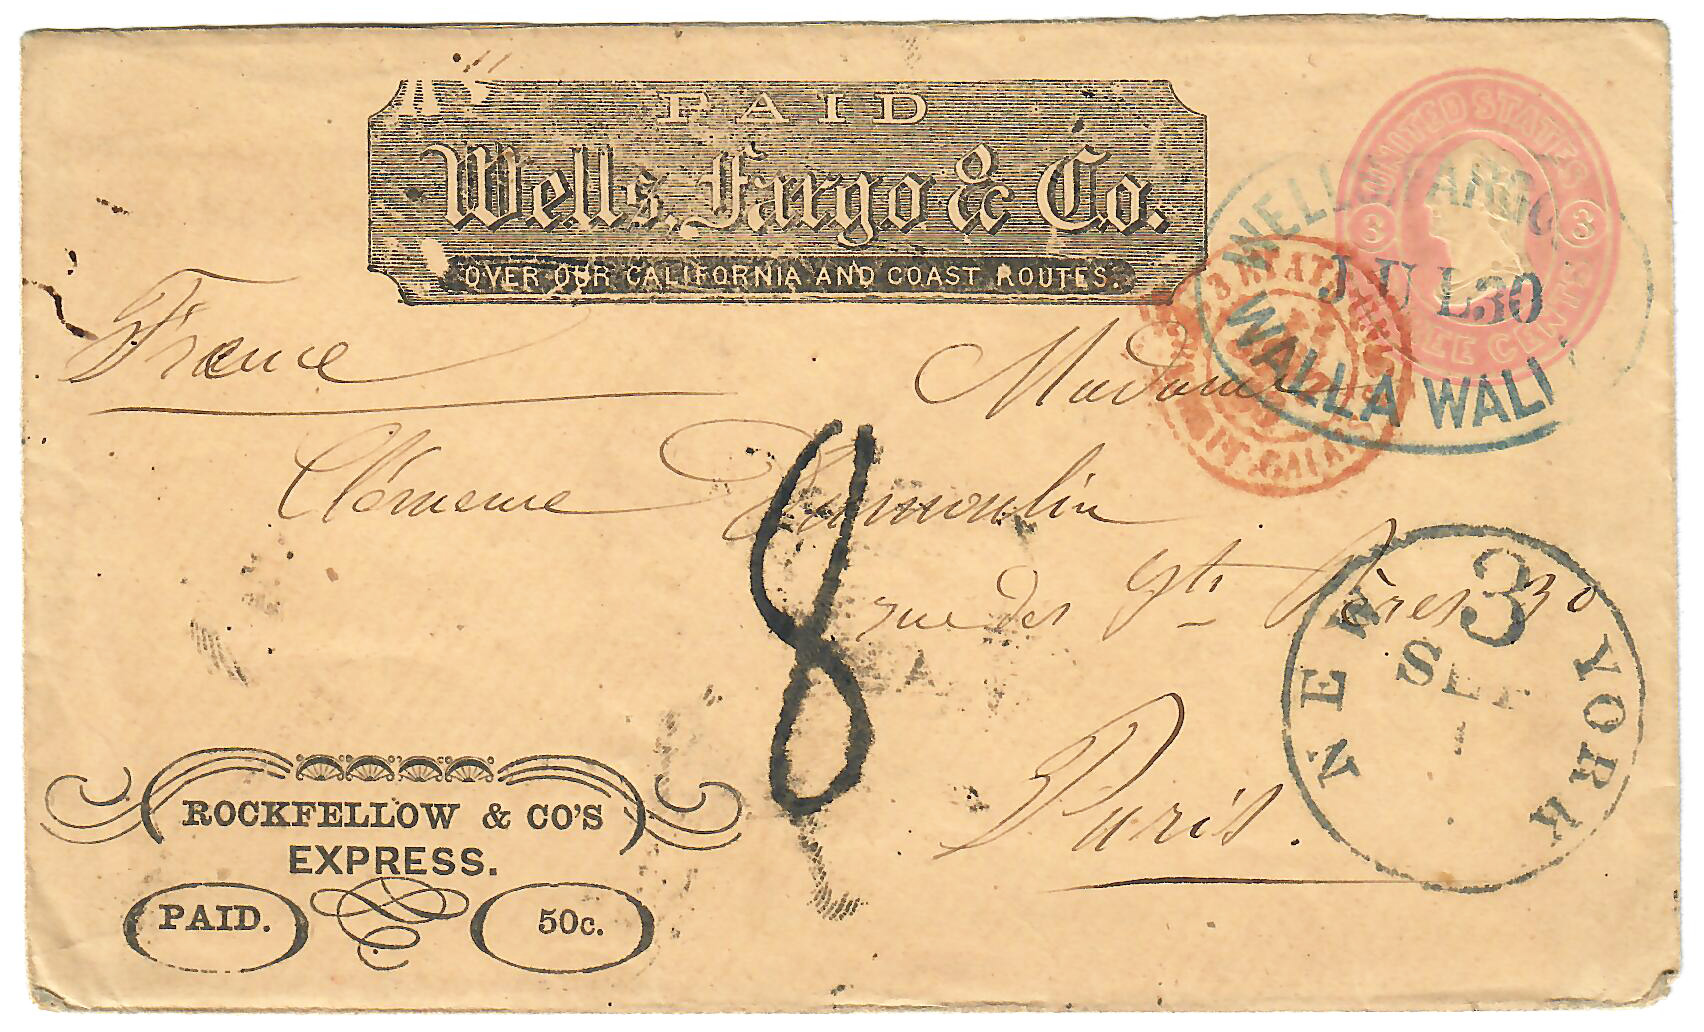 PAID
Wells, Fargo & Co.
OVER OUR CALIFORNIA AND COAST ROUTES.
UNITED STATES
3 3
THREE CENTS
WELLS FARGO
JUL 30
WALLA WALL
France
Madame
Clémence Dumoulin
rue des Sts Pères 30
Paris.
8
NEW YORK
3
SEP
1
ROCKFELLOW & CO'S
EXPRESS.
PAID. 50c.